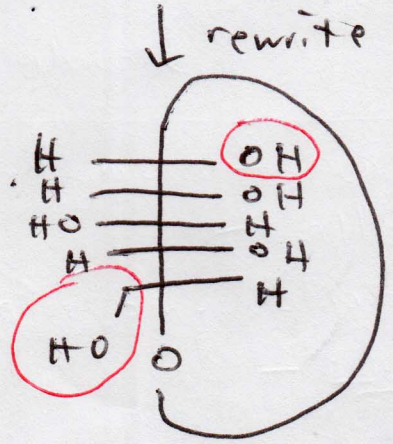 rewrite
H OH
H OH
HO H
H OH
H
HO O